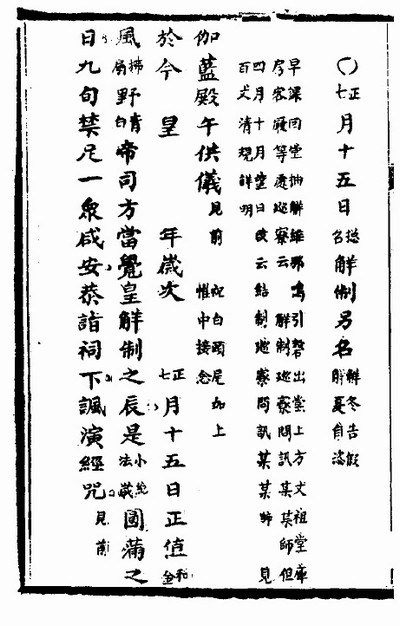 ○正七月十五日總名解制另名解冬告假解夏自恣
早課回堂抽解維那鳴引磬出堂上方丈祖堂庫
房客寮等處巡寮云 解制巡寮問訊某某師但
四月十月望日改云結制巡寮問訊某某師 見
百丈清規詳明
伽藍殿午供儀見前 祝白頭尾如上
惟中接念
於今 皇 年歲次正七月十五日正值和金
風拂扇野青白帝司方當覺皇解制之辰是小法歲圓蒲之
日九旬禁足一衆咸安恭詣祠下諷演經咒見前